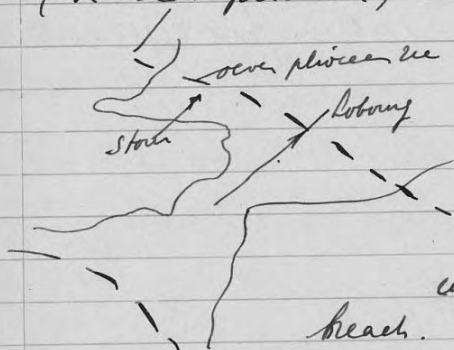 oever plioceen zee
Lobourg
Stour
breach.